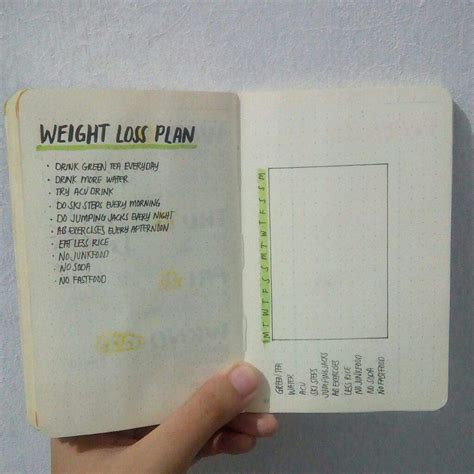 WEIGHT LOSS PLAN
• DRINK GREEN TEA EVERYDAY
• DRINK MORE WATER
• TRY ACV DRINK
• DO SKI STEPS EVERY MORNING
• DO JUMPING JACKS EVERY NIGHT
• AB EXERCISES EVERY AFTERNOON
• EAT LESS RICE
• NO JUNKFOOD
• NO SODA
• NO FASTFOOD
M T W T F S S M T W T F S S M
GREEN TEA
WATER
ACV
SKI STEPS
JUMPING JACKS
AB EXERCISES
LESS RICE
NO JUNKFOOD
NO SODA
NO FASTFOOD